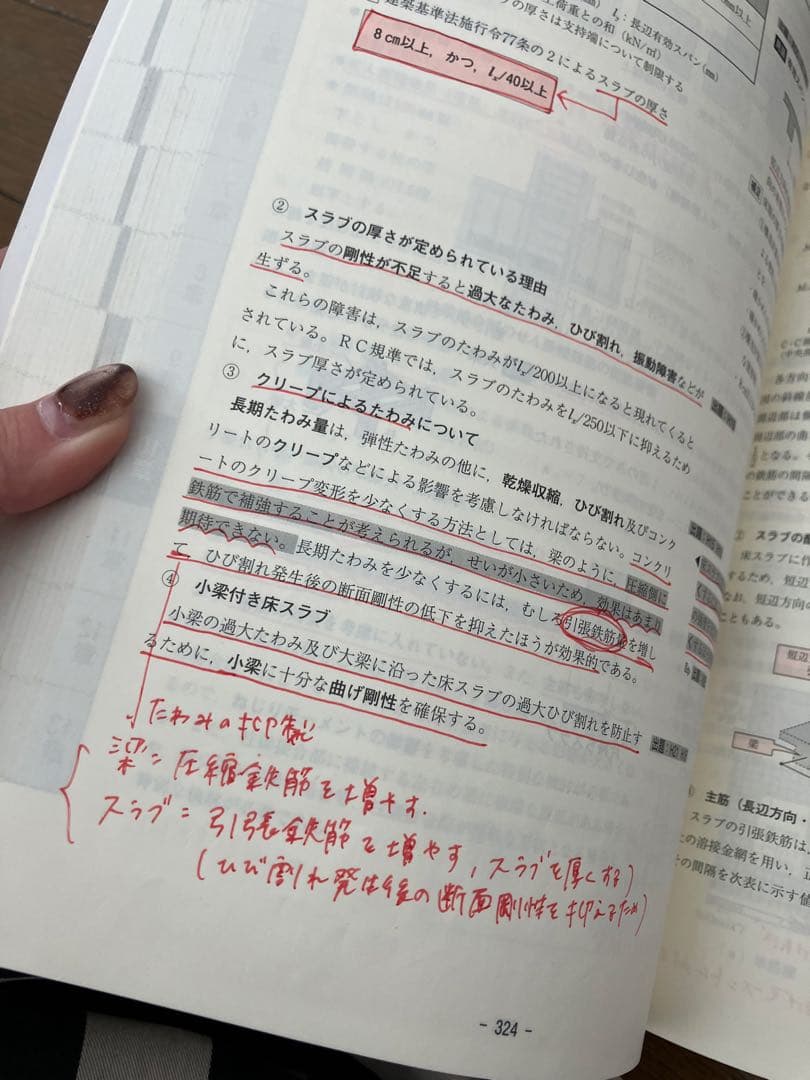 上荷重との和（kN/㎡） lx：長辺有効スパン(㎜)
建築基準法施行令77条の２によるスラブの厚さ
の厚さは支持端について制限する
8㎝以上，かつ，lx/40以上
② スラブの厚さが定められている理由
スラブの剛性が不足すると過大なたわみ，ひび割れ，振動障害などが
生ずる。
これらの障害は，スラブのたわみがlx/200以上になると現れてくると
されている。ＲＣ規準では，スラブのたわみをlx/250以下に抑えるため
に，スラブ厚さが定められている。
③ クリープによるたわみについて
長期たわみ量は，弾性たわみの他に，乾燥収縮，ひび割れ及びコンク
リートのクリープなどによる影響を考慮しなければならない。コンクリ
ートのクリープ変形を少なくする方法としては，梁のように，圧縮側に
鉄筋で補強することが考えられるが，せいが小さいため，効果はあまり
期待できない。長期たわみを少なくするには，むしろ引張鉄筋量を増し
て，ひび割れ発生後の断面剛性の低下を抑えたほうが効果的である。
④ 小梁付き床スラブ
小梁の過大たわみ及び大梁に沿った床スラブの過大ひび割れを防止す
るために，小梁に十分な曲げ剛性を確保する。
たわみの抑制
梁＝圧縮鉄筋を増やす．
スラブ＝引張鉄筋を増やす，スラブを厚くする
（ひび割れ発生後の断面剛性を抑えるため）
- 324 -
② スラブの配
床スラブに作
主筋（長辺方向・
スラブの引張鉄筋は，
の溶接金網を用い，正
の間隔を次表に示す値
梁
短辺